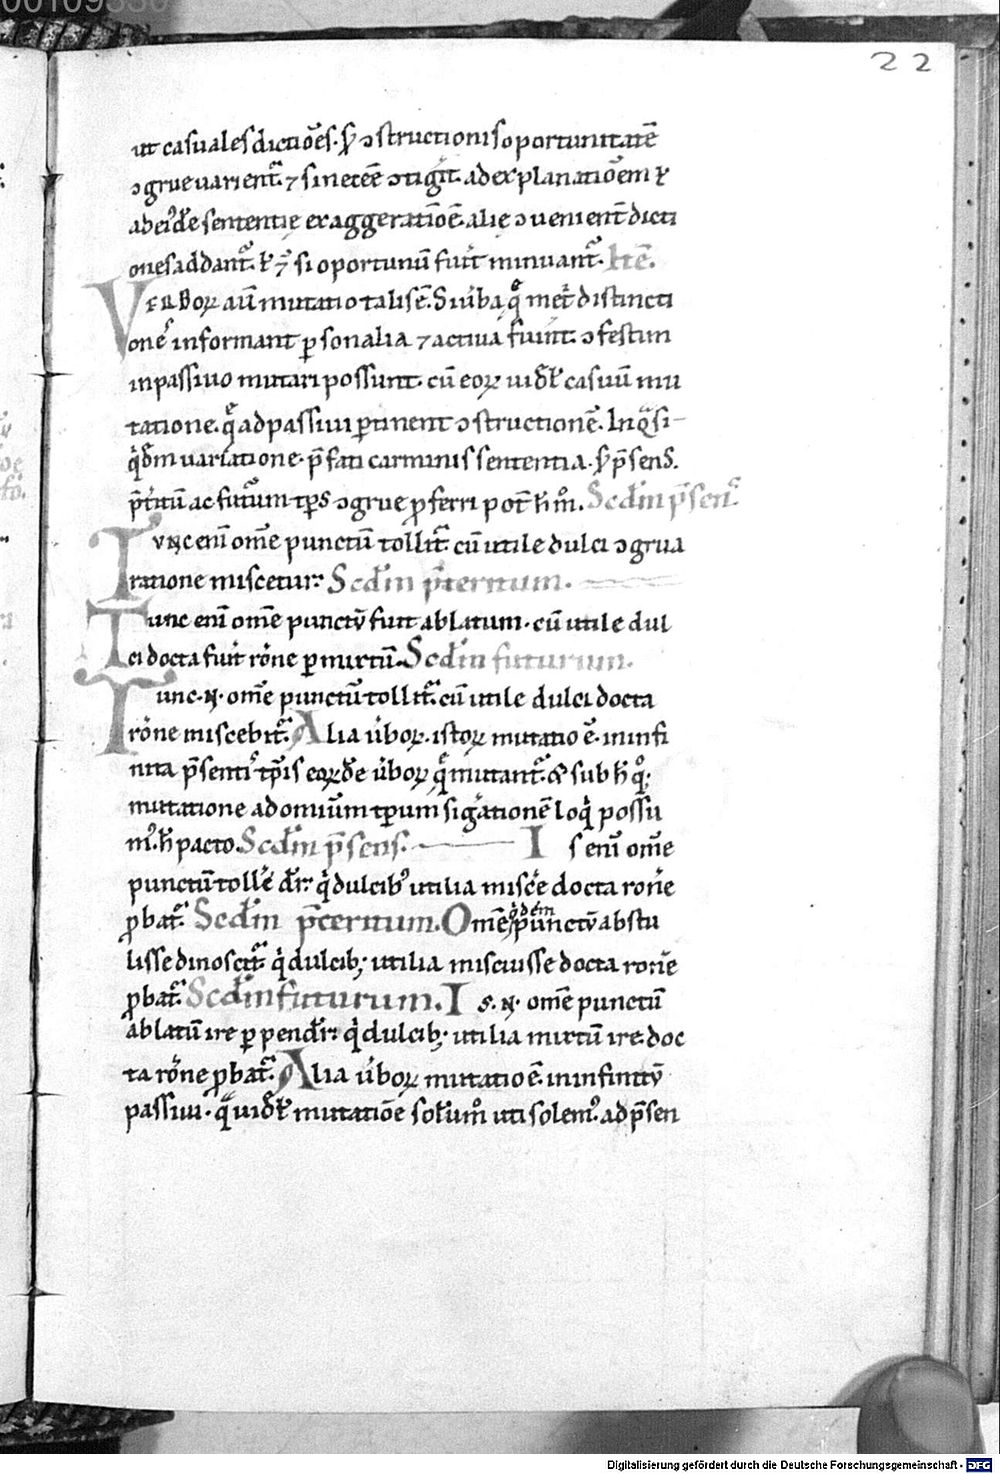 22
ut casuales dictiōes. ꝯstructionis oportunitatē
ꝯgrue varient᷑. ⁊ si necēē ꝯtiḡit. ad explanatiōem ł
ad ei᷒dē sententię exaggeratiōē alię ꝯuenient̄ dicti
ones addant᷑. ł si oportunū fuīt minuant᷑. Itē.
VERBOꝝ aū mutatio talis ē. Si ūba q̄ met̄ distincti
onē informant ꝑsonalia ⁊ activa fūint. ꝯfestim
in passiuo mutari possunt. cū eoꝝ uidł casuū mu
tatione. q̄ ad passiui ꝑtinent ꝯstructionē. In q̄ si-
q̄dm uariatione. p̄fati carminis sententia. p̄sens.
p̄t̄itū ac futūum tp̄s ꝯgrue ꝓferri pot̄ h̄ m̊. Scd̄m p̄sens᷑.
TVNC enī om̄e punctū tollit᷑. cū utile dulci ꝯgrua
ratione miscetur. Scd̄m p̄teritum.
Tunc enī om̄e punctū fuit ablatum. cū utile dul
ci docta fuīt rōne ꝑmixtū. Scd̄m futurum.
Tunc .N. om̄e punctū tollit᷑. cū utile dulci docta
rōne miscebit᷑. Alia ūboꝝ. istoꝝ mutatio ē. in infi
nita p̄senti᷒ tp̄is eoꝝdē ūboꝝ q̄ mutant᷑. & sub h̄ q̊ꝫ
mutatione ad omīum tp̄um sig̅ationē loq̄ possu
m᷒. h̄ pacto. Scd̄m p̄sens. Is enī om̄e
punctū tollē dr̄. q̄ dulcib᷒ utilia miscē docta rōne
ꝓbat᷑. Scd̄m p̄teritum. Om̄e q̇dēm punctū abstu
lisse dinoscit᷑. q̄ dulcibꝫ utilia miscuisse docta rōne
ꝓbat᷑. Scd̄m futurum. Is .N. om̄e punctū
ablatū ire ꝑpendit᷑. q̄ dulcibꝫ utilia mixtū ire. doc
ta rōne ꝓbat᷑. Alia ūboꝝ mutatio ē. in infinitū
passiui. q̄ uidł mutatiōe uti solem᷒. ad p̄sen
Digitalisierung gefördert durch die Deutsche Forschungsgemeinschaft - DFG